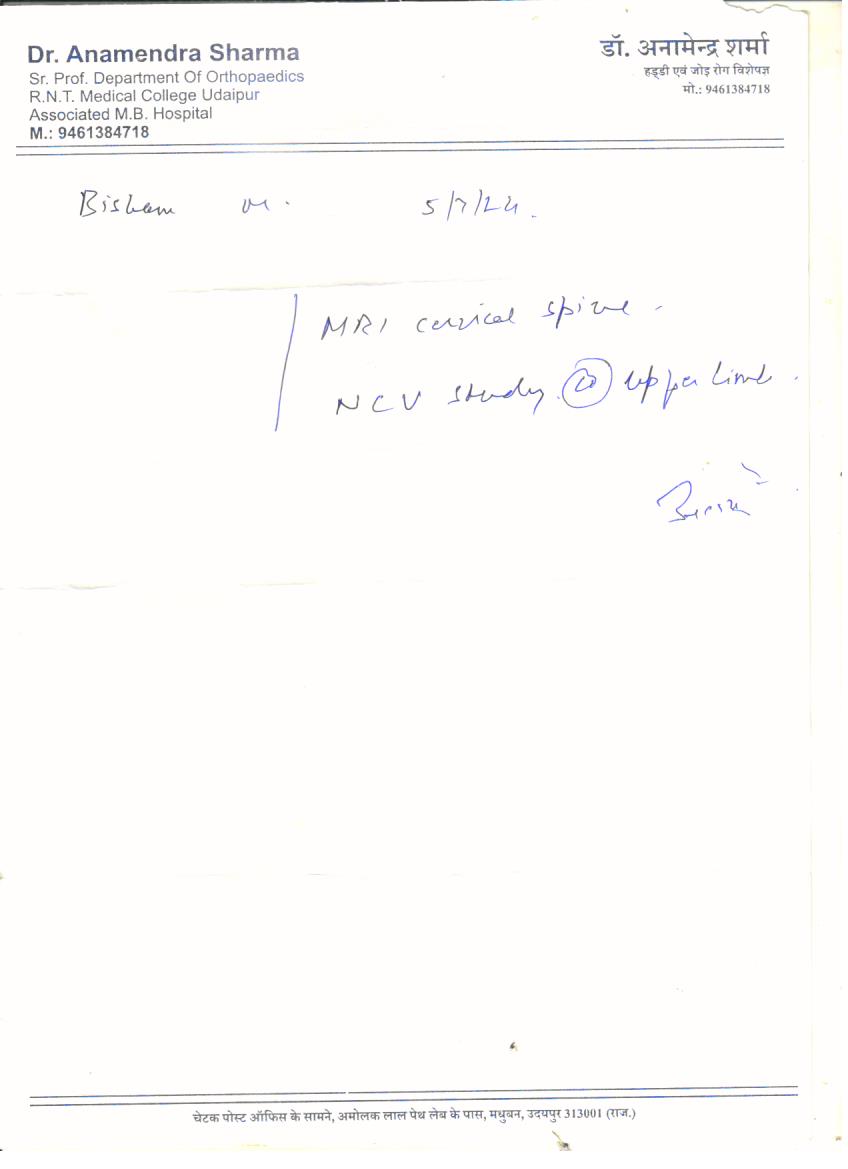 Dr. Anamendra Sharma
Sr. Prof. Department Of Orthopaedics
R.N.T. Medical College Udaipur
Associated M.B. Hospital
M.: 9461384718
डॉ. अनामेन्द्र शर्मा
हड्डी एवं जोड़ रोग विशेषज्ञ
मो.: 9461384718
5/7/24
MRI cervical spine
NCV study upper limb
चेटक पोस्ट ऑफिस के सामने, अमोलक लाल पेथ लेब के पास, मधुबन, उदयपुर 313001 (राज.)